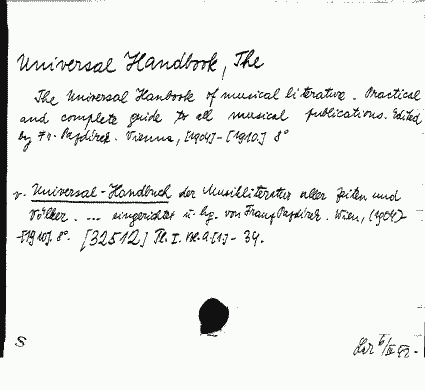 Universal Handbook, The
The Universal Hanbook of musical literatura. Practical
and complete guide to all musical publications. Edited
by Fr. Pazdírek. Vienna, [1904]-[1910.] 8°
v. Universal-Handbuch der Musikliteratur aller Zeiten und
Völker. ... eingerichtet u. hg. von Franz Pazdírek. Wien, (1904)-
-[1910]. 8°. [32512] Tl. I. Bd. A.[1]- 34.
S